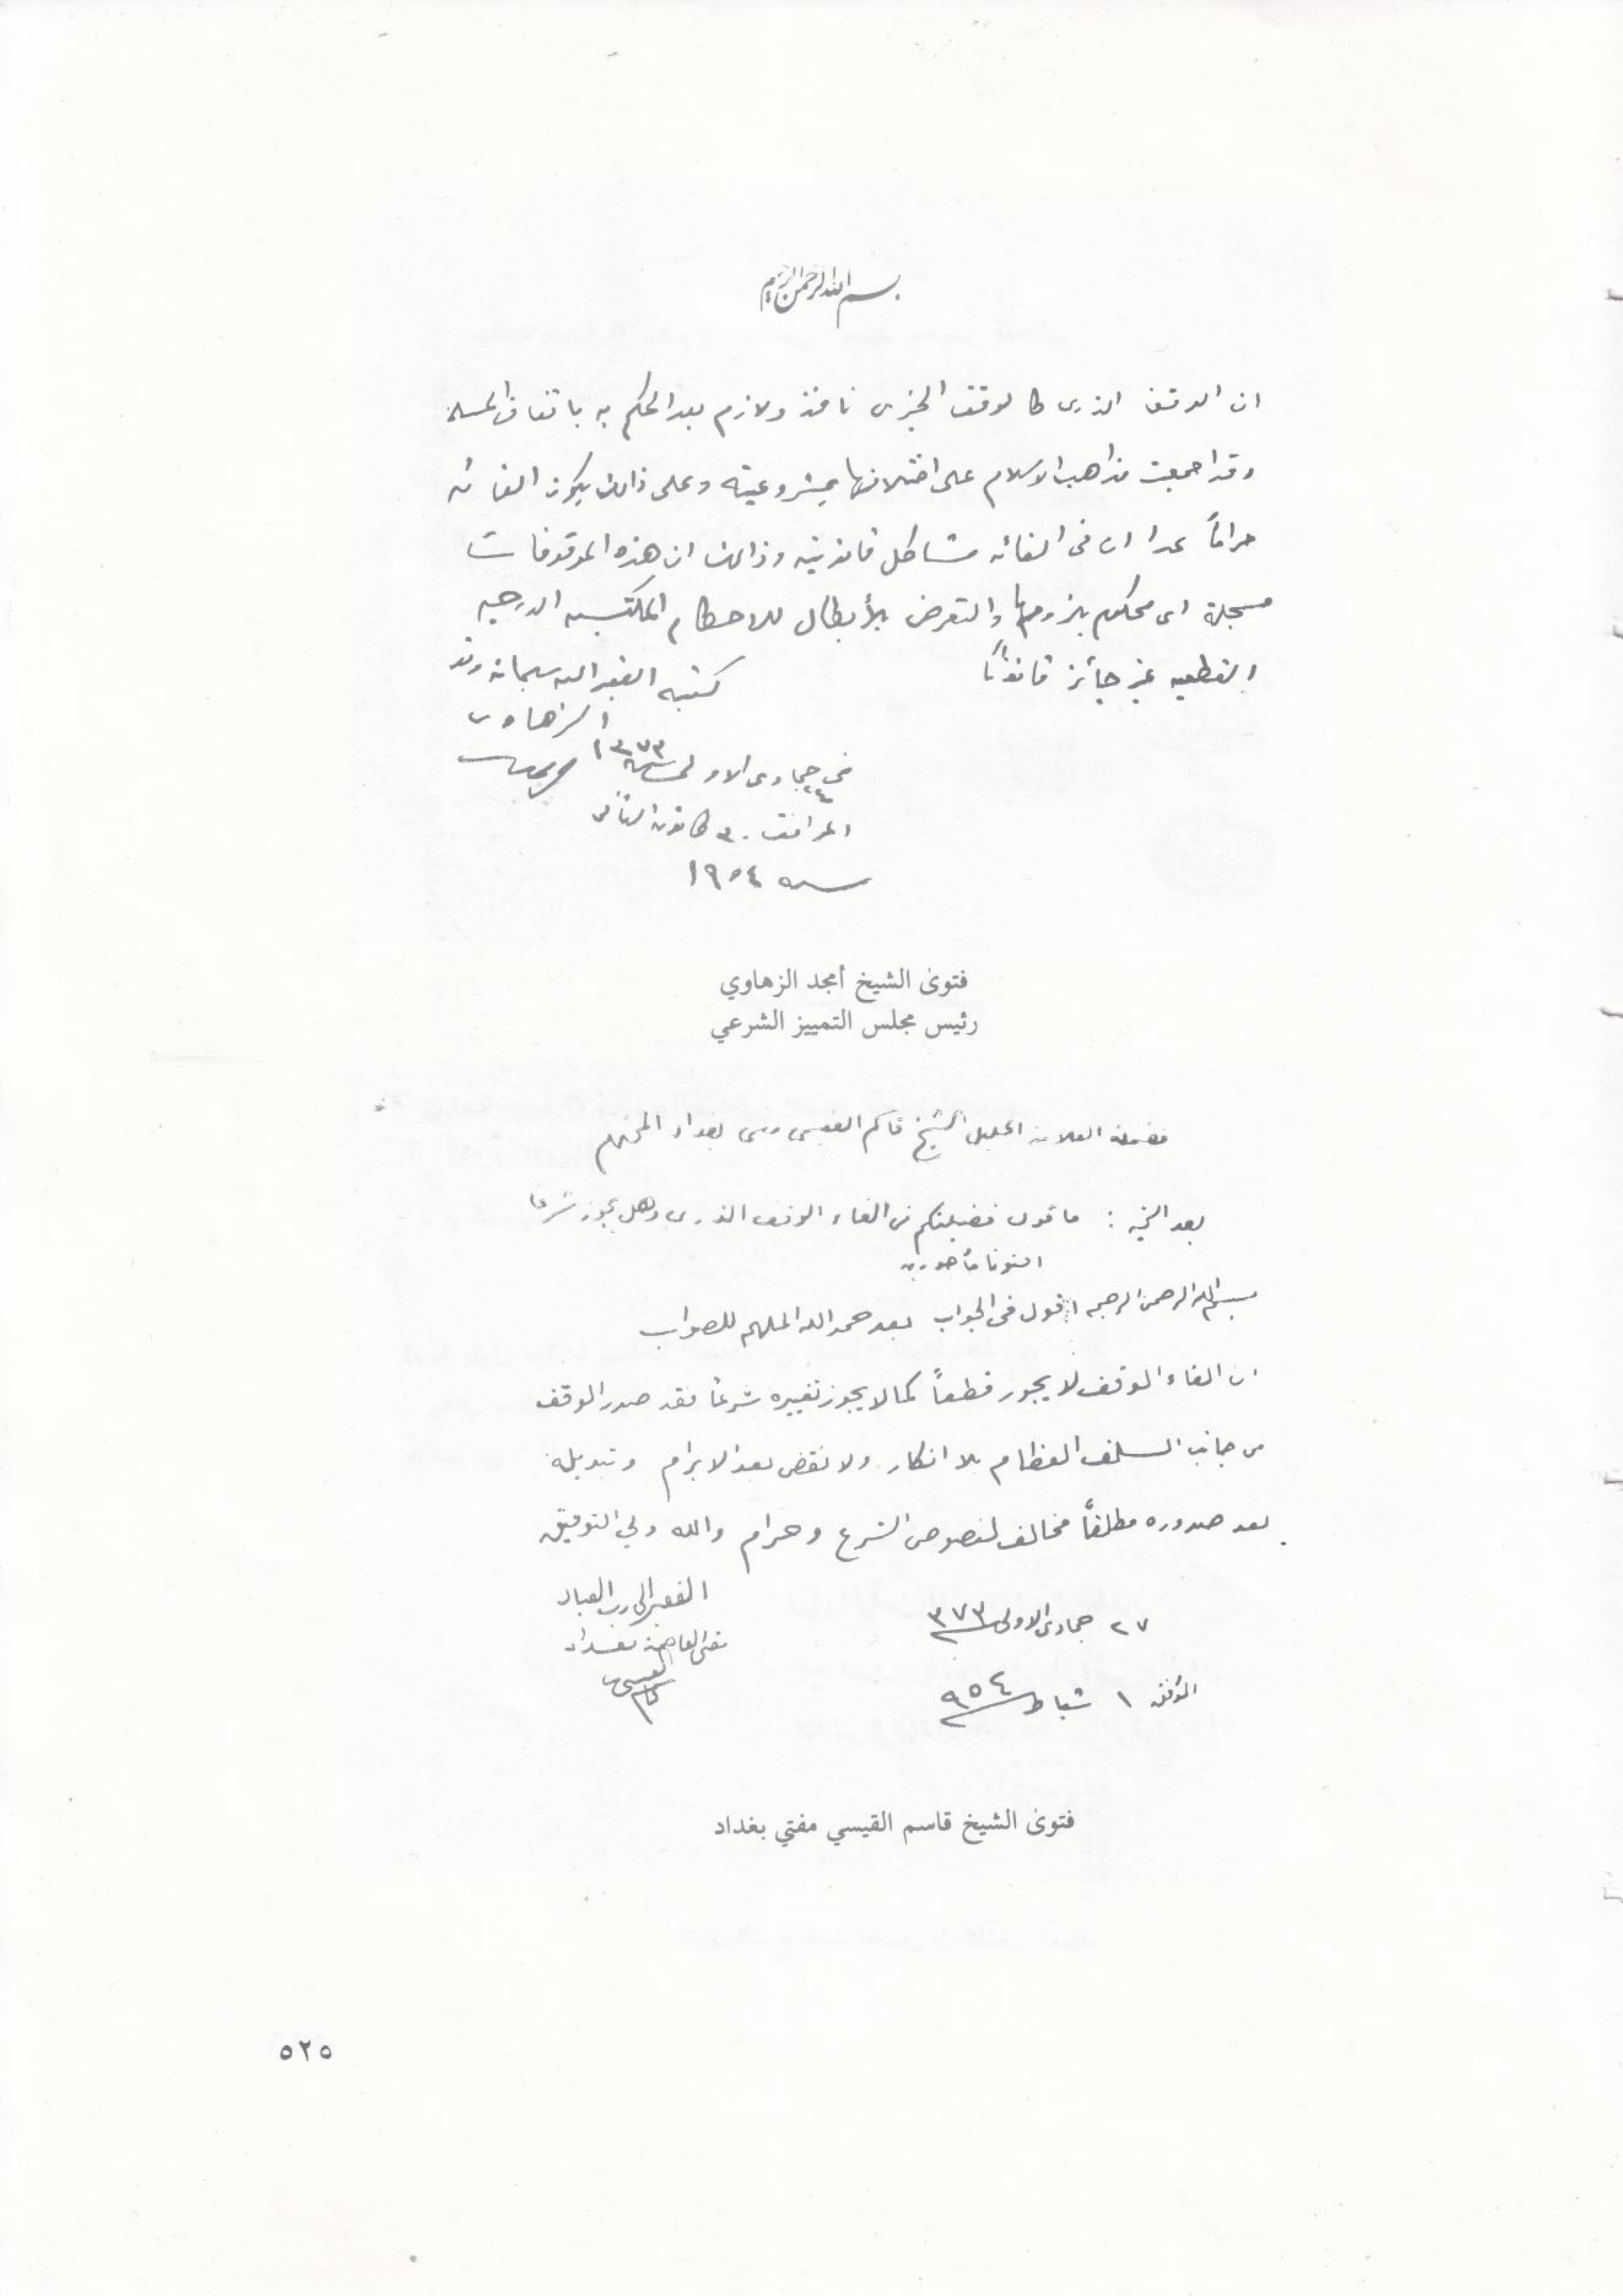 بسم الله الرحمن الرحيم
ان الوقف الذري كالوقف الخيري نافذ ولازم بعد الحكم به باتفاق المسلمين
وقد اجمعت مذاهب الاسلام على اختلافها بمشروعيته وعلى ذالك يكون الغائه
حراماً عدا ان في الغائه مشاكل قانونية وذالك ان هذه الموقوفات
مسجلة اي محكوم بلزومها والتعرض بالأبطال للاحكام المكتسبه الدرجه
القطعيه غير جائز قانوناً
كتبه الفقير اليه سبحانه وتعالى
الزهاوي
في ٢٤ جمادى الاولى سنة ١٣٧٣
الموافق ٣٠ كانون الثاني
سنه ١٩٥٤
فتوىٰ الشيخ أمجد الزهاوي
رئيس مجلس التمييز الشرعي
فضيلة العلامة الجليل الشيخ قاسم القيسي مفتي بغداد المحترم
بعد التحية : ما قول فضيلتكم في الغاء الوقف الذري وهل يجوز شرعا
افتونا مأجورين
بسم الله الرحمن الرحيم اقول في الجواب بعد حمد الله الملهم للصواب
ان الغاء الوقف لا يجوز قطعاً كما لا يجوز تغييره شرعاً فقد صدر الوقف
من جانب السلف العظام بلا انكار ولا نقض بعد الابرام وتبديله
بعد صدوره مطلقاً مخالف لنصوص الشرع وحرام والله ولي التوفيق
الفقير الى رب العباد
مفتي العاصمة بغداد
قاسم القيسي
٢٧ جمادى الاولى سنة ٣٧٣
الموافق ١ شباط سنة ٩٥٤
فتوىٰ الشيخ قاسم القيسي مفتي بغداد
٥٢٥